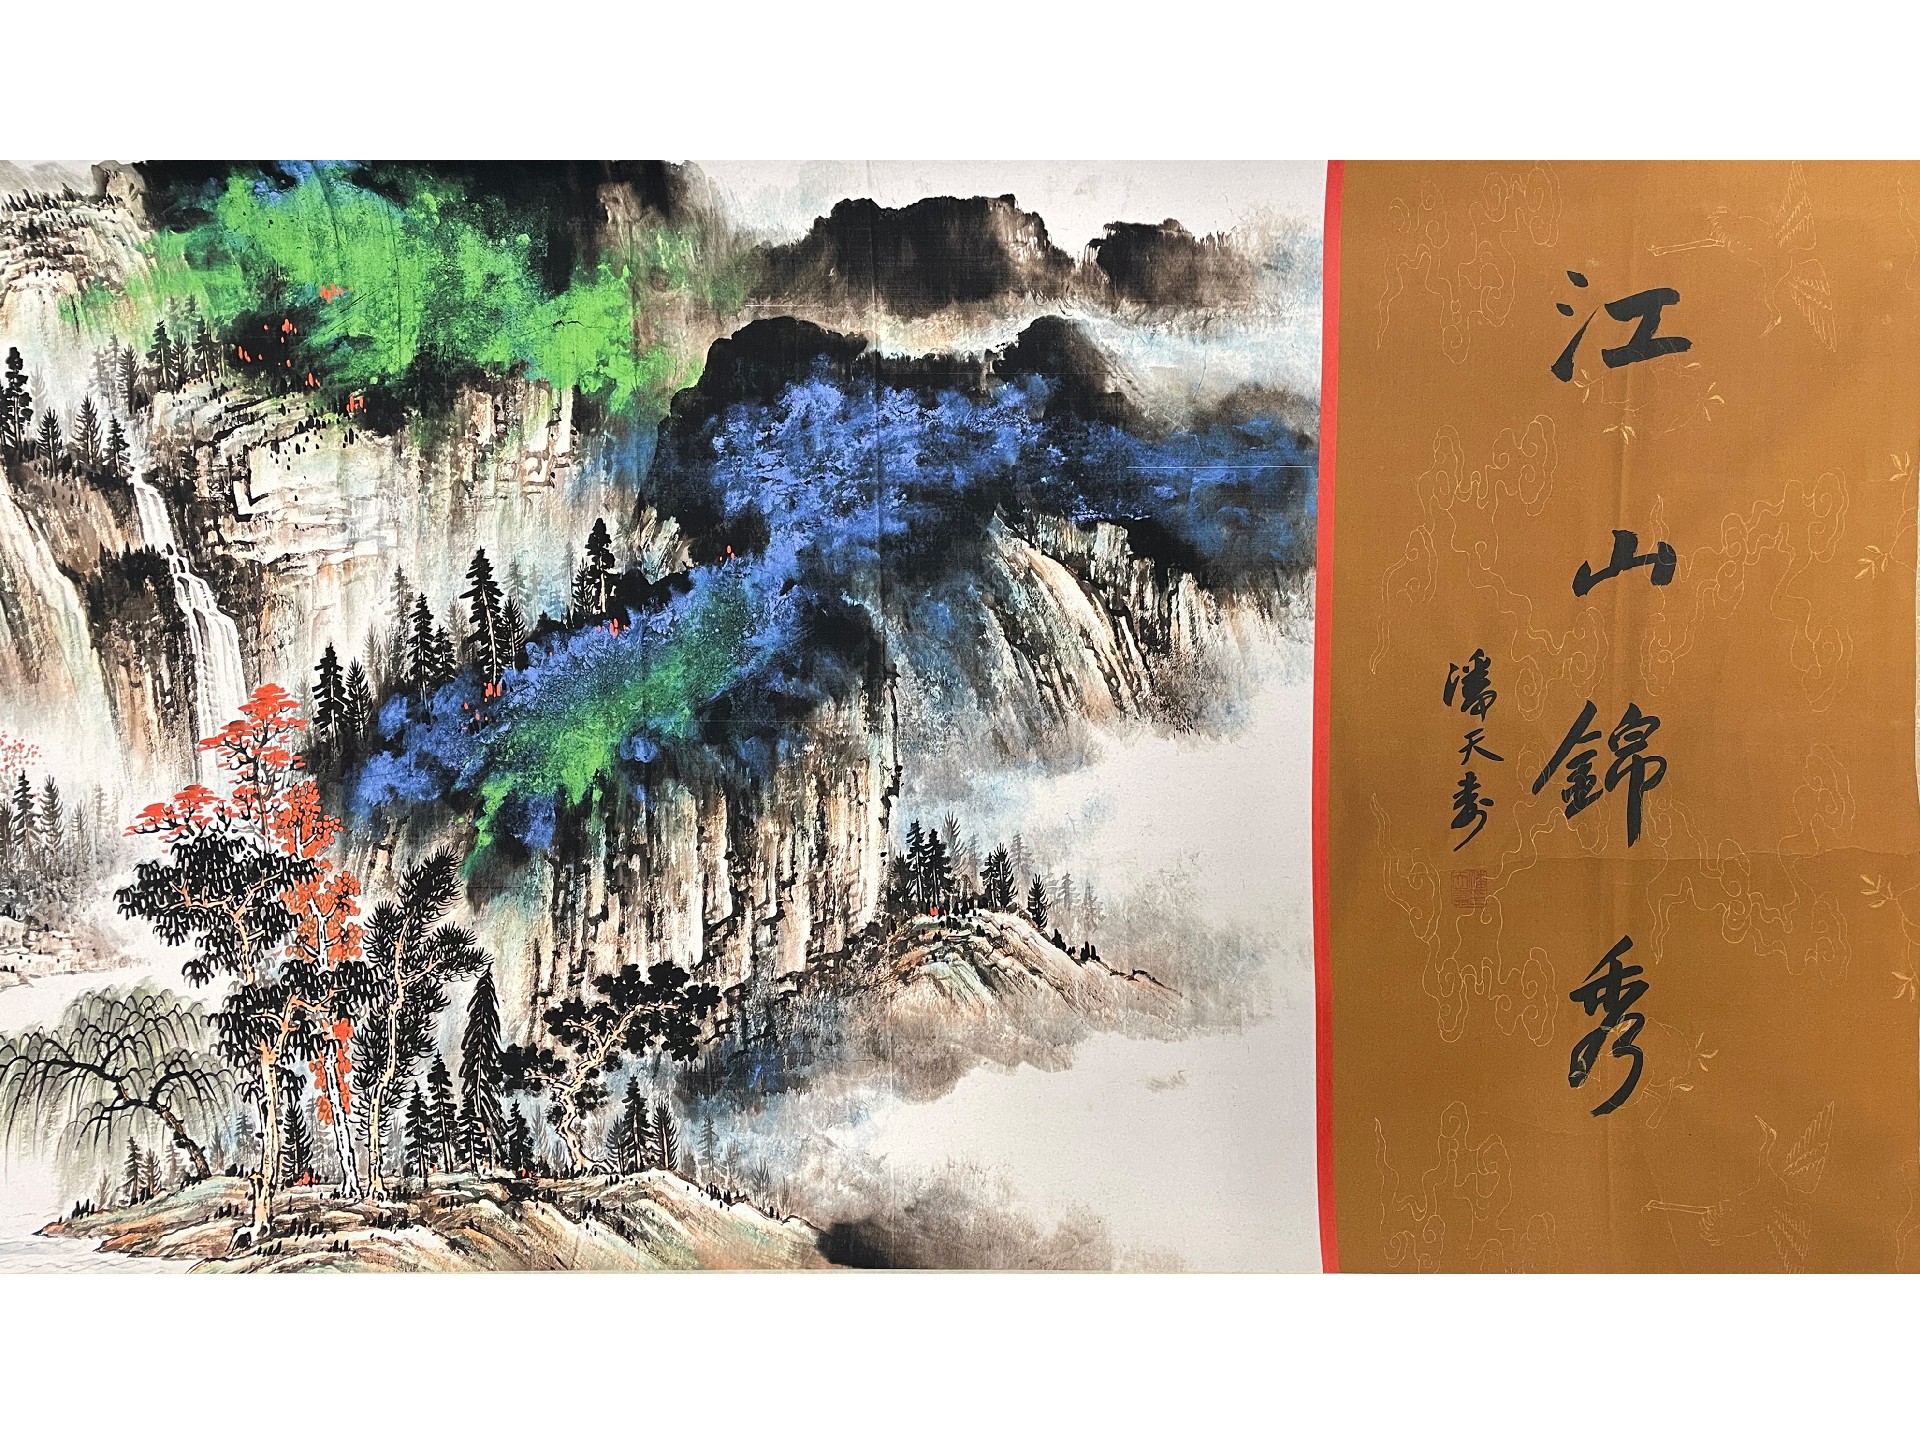 江山錦秀
潘天寿